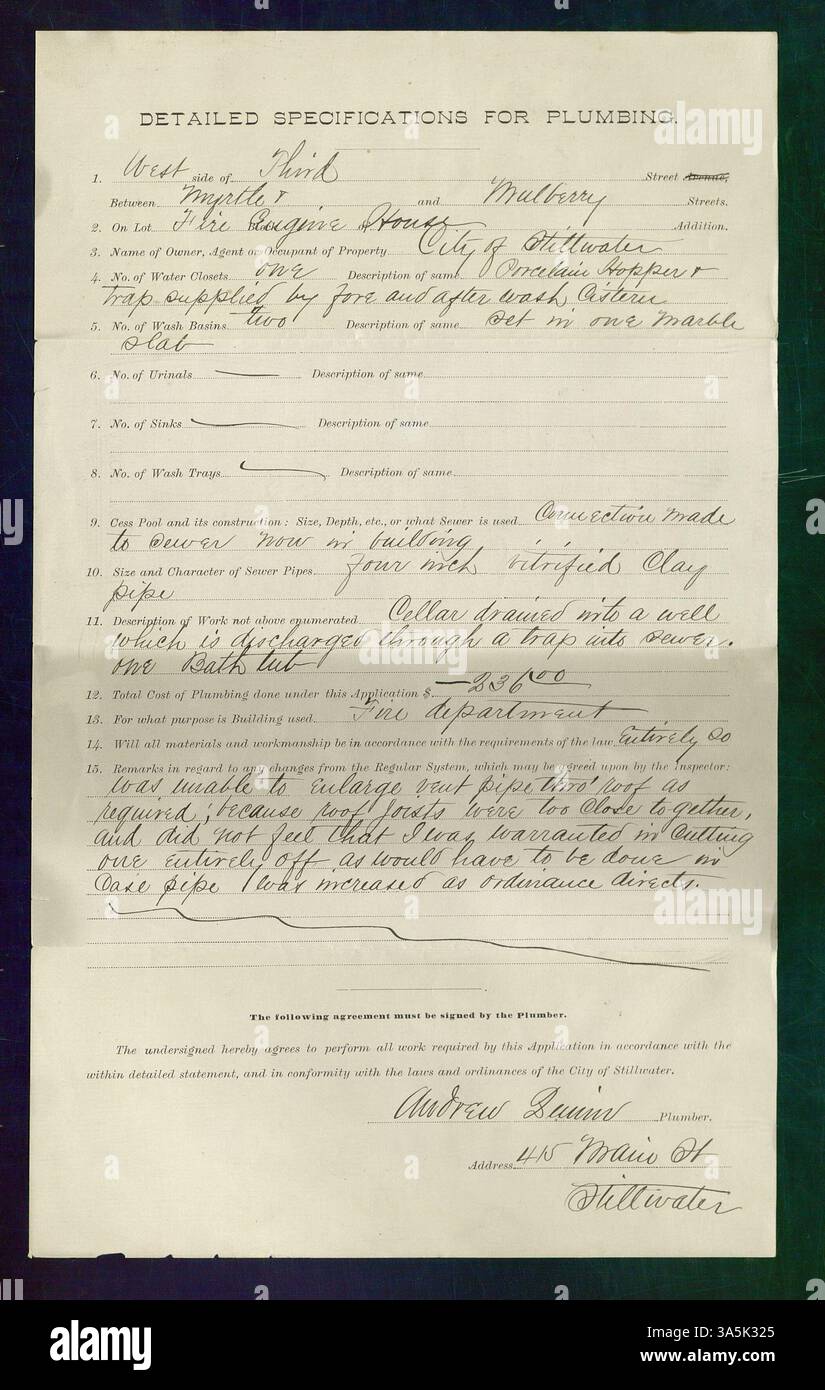 DETAILED SPECIFICATIONS FOR PLUMBING.
1. West side of Third Street Avenue,
Between Myrtle & and Mulberry Streets.
2. On Lot Fire Engine House Addition.
3. Name of Owner, Agent or Occupant of Property City of Stillwater
4. No. of Water Closets one Description of same Porcelain Hopper &
trap supplied by fore and after wash Cistern
5. No. of Wash Basins two Description of same set in one marble
slab
6. No. of Urinals Description of same
7. No. of Sinks Description of same
8. No. of Wash Trays Description of same
9. Cess Pool and its construction: Size, Depth, etc., or what Sewer is used Connection made
to sewer now in building
10. Size and Character of Sewer Pipes four inch vitrified Clay
pipe
11. Description of Work not above enumerated Cellar drained into a well
which is discharged through a trap into sewer.
one Bath tub
12. Total Cost of Plumbing done under this Application $ 236 00
13. For what purpose is Building used Fire department
14. Will all materials and workmanship be in accordance with the requirements of the law Entirely so
15. Remarks in regard to any changes from the Regular System, which may be agreed upon by the Inspector:
was unable to enlarge vent pipe thro' roof as
required; because roof joists were too close together,
and did not feel that I was warranted in cutting
one entirely off as would have to be done in
Case pipe was increased as ordinance directs.
The following agreement must be signed by the Plumber.
The undersigned hereby agrees to perform all work required by this Application in accordance with the
within detailed statement, and in conformity with the laws and ordinances of the City of Stillwater.
Andrew Plumber.
Address 415 Main St
Stillwater
alamy
Image ID: 3A5K325
www.alamy.com